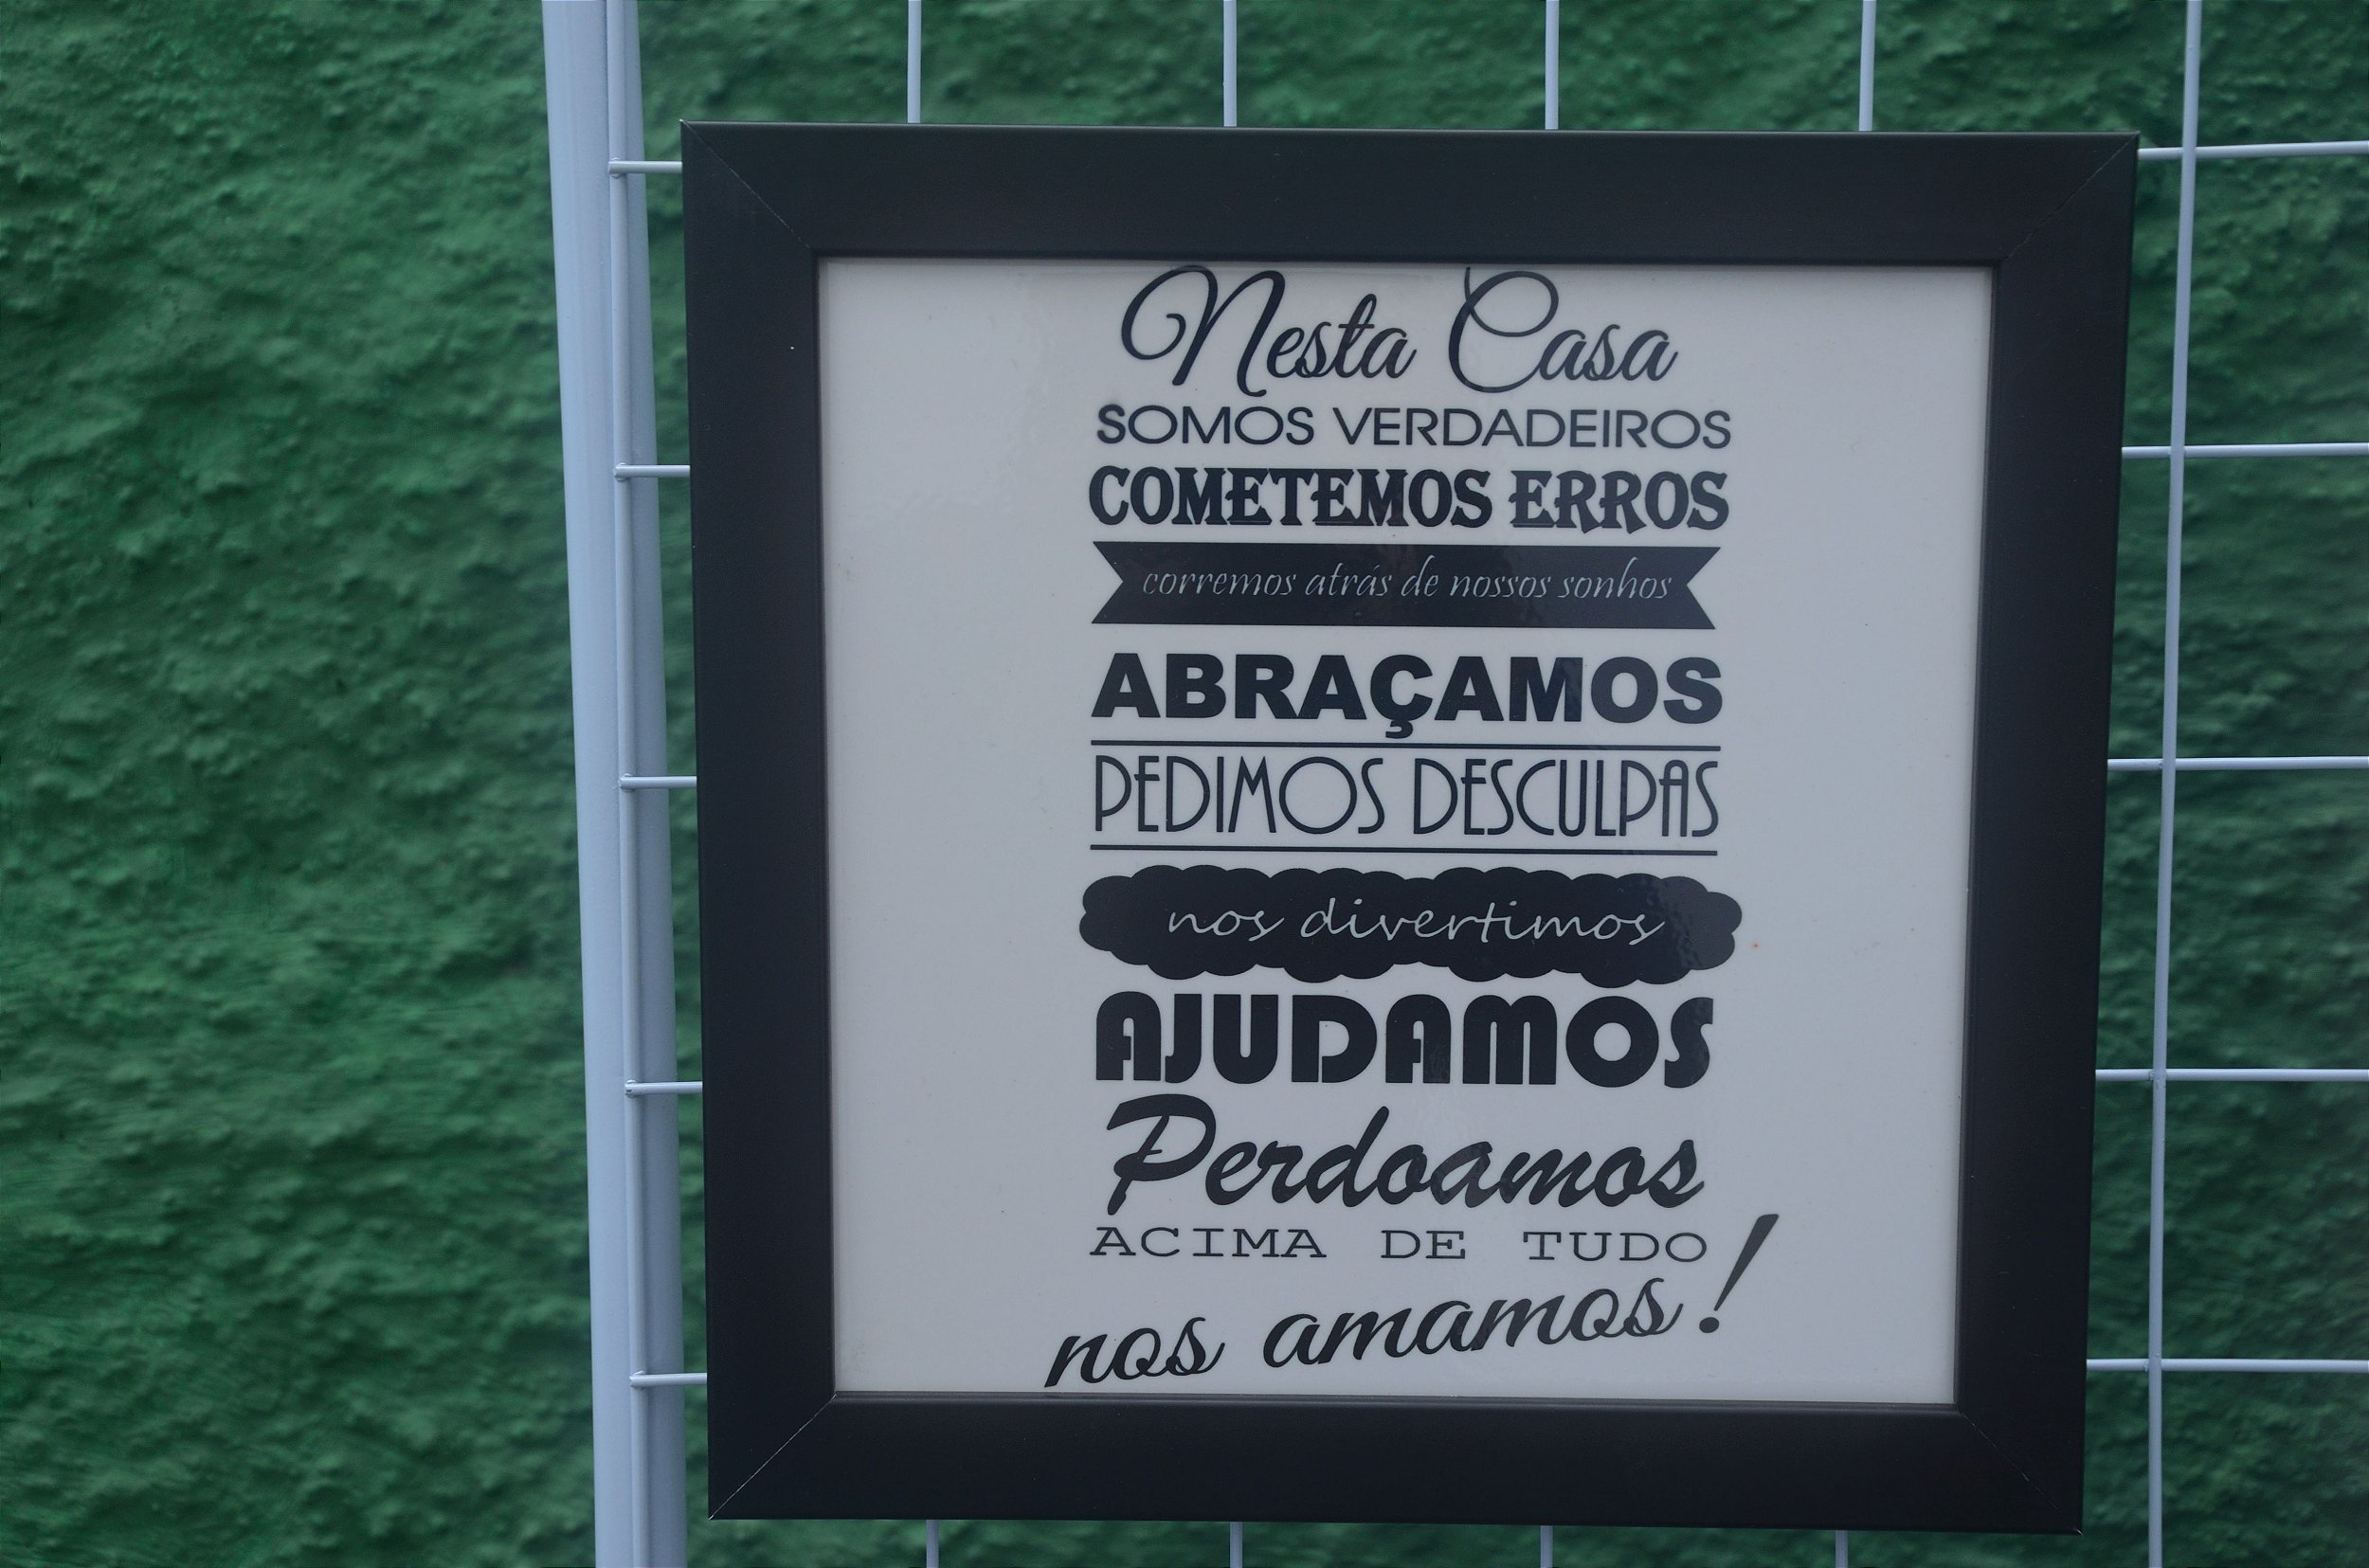 Nesta Casa
SOMOS VERDADEIROS
COMETEMOS ERROS
corremos atrás de nossos sonhos
ABRAÇAMOS
PEDIMOS DESCULPAS
nos divertimos
AJUDAMOS
Perdoamos
ACIMA DE TUDO
nos amamos!